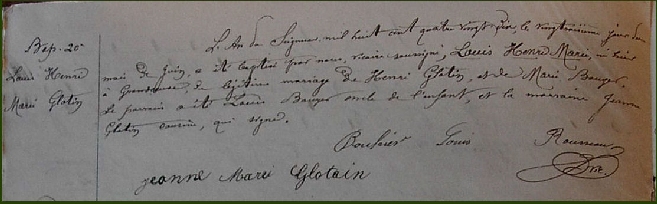 Bap. 20e
Louis Henri
Marie Glotin
L'An du Seigneur mil huit cent quatre vingt six, le vingtroisième jour du
mois de Juin, a été baptisé par nous, vicaire soussigné, Louis Henri Marie, né hier
à de légitime mariage de Henri Glotin, et de Marie Bouyer.
Le parrain a été Louis Bouyer oncle de l'enfant, et la marraine Jeanne
Glotin cousine, qui signe.
Louis Rousseau
jeanne Marie Glotain